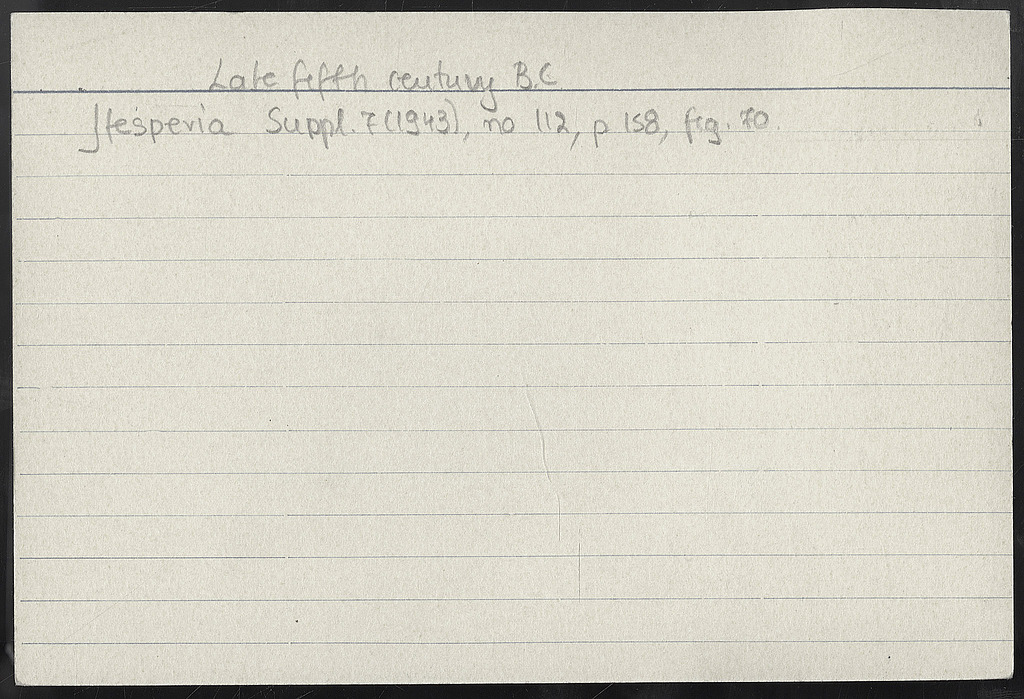 Late fifth century B.C.
Hesperia Suppl. 7 (1943), no 112, p 158, fig. 70.